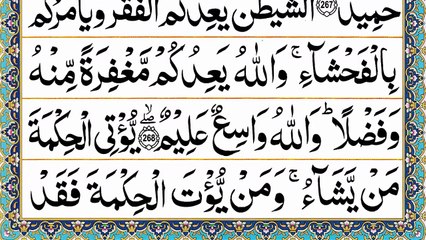 حَمِيدٌ ﴿267﴾ اَلشَّيْطٰنُ يَعِدُكُمُ الْفَقْرَ وَيَاْمُرُكُمْ
بِالْفَحْشَآءِ ۚ وَاللّٰهُ يَعِدُكُمْ مَّغْفِرَةً مِّنْهُ
وَفَضْلًا ؕ وَاللّٰهُ وَاسِعٌ عَلِيْمٌ ﴿268﴾ ۙۖ يُّؤْتِى الْحِكْمَةَ
مَنْ يَّشَآءُ ۚ وَمَنْ يُّؤْتَ الْحِكْمَةَ فَقَدْ